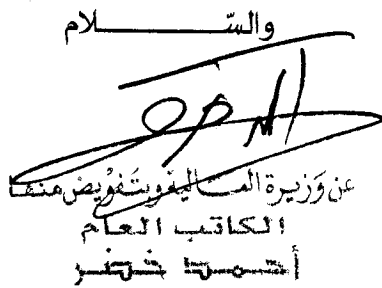 والسّلام
عن وزيرة المالية وبتفويض منها
الكاتب العام
أحمد خضر